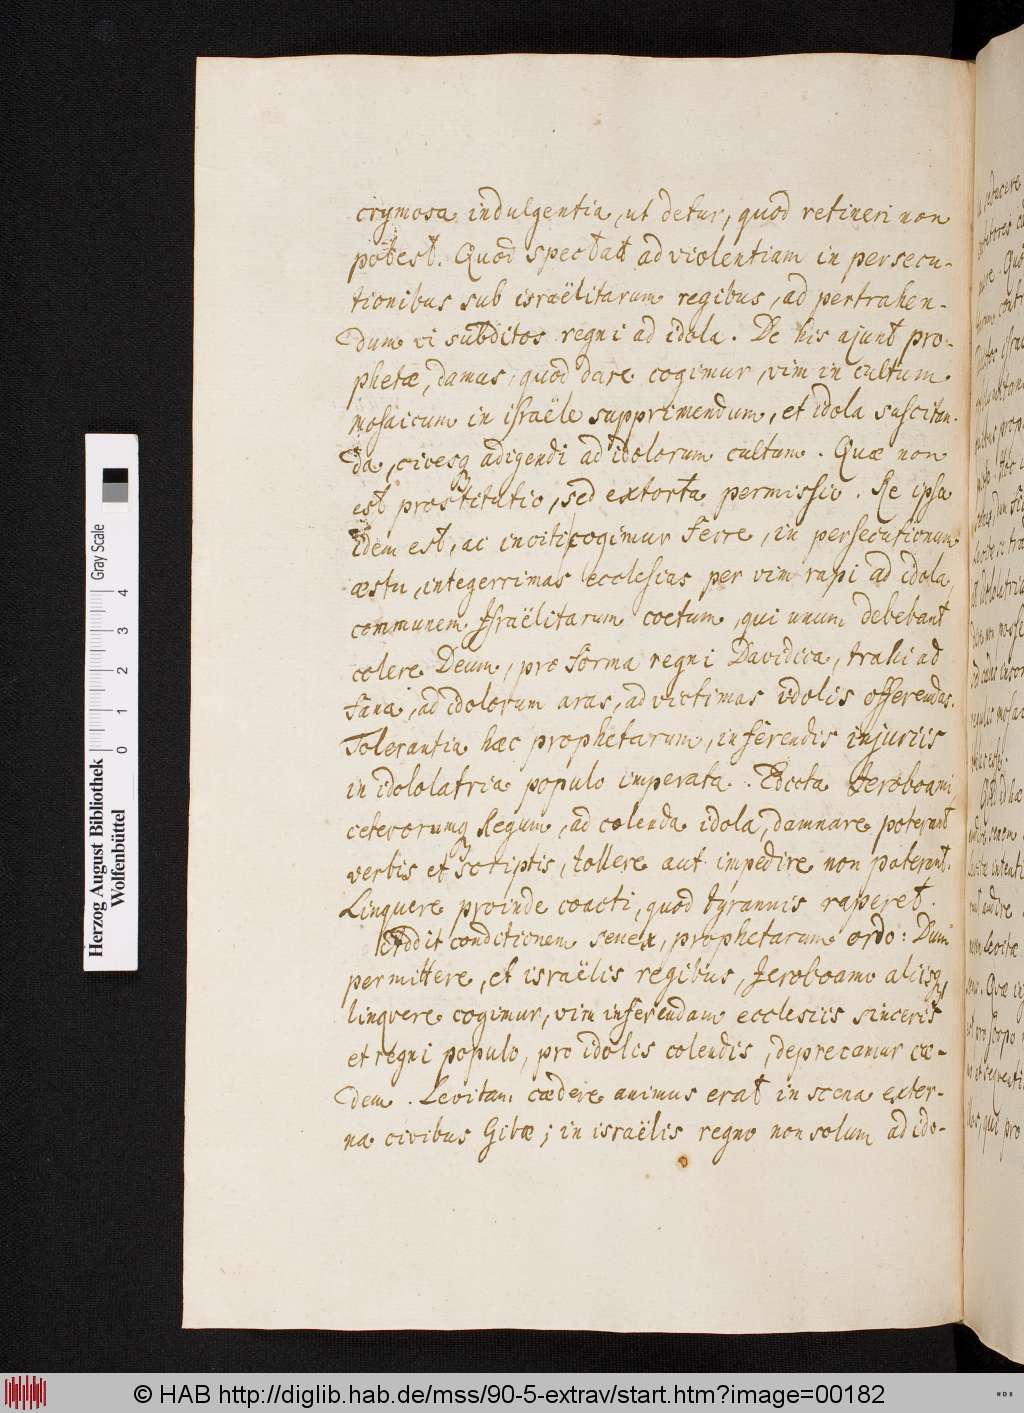 crymosa indulgentia, ut detur, quod retineri non
potest. Quod spectat ad violentiam in persecu-
tionibus sub israëlitarum regibus, ad pertrahen-
dum vi subditos regni ad idola. De his ajunt pro-
phetæ, damus, quod dare cogimur, vim in cultum
mosaicum in israële supprimendum, et idola suscitan-
da, civesq adigendi ad idolorum cultum. Quæ non
est prostitutio, sed extorta permissio. Re ipsa
idem est, ac inviti cogimur ferre, in persecutionum
æstu, integerrimas ecclesias per vim rapi ad idola,
communem Israëlitarum coetum, qui unum debebant
colere Deum, pro forma regni Davidica, trahi ad
fana, ad idolorum aras, ad victimas idolis offerendas.
Tolerantia hæc prophetarum, in ferendis injuriis
in idololatria populo imperata. Edicta Jeroboami,
ceterorumq Regum, ad colenda idola, damnare poterant
verbis et scriptis, tollere aut impedire non poterant.
Linquere proinde coacti, quod tyrannis raperet.
Addit conditionem senex, prophetarum ordo: Dum
permittere, et israëlis regibus, Jeroboamo aliisq
linquere cogimur, vim inferendam ecclesiis sinceris
et regni populo, pro idolis colendis, deprecamur cæ-
dem. Levitam cædere animus erat in scena exter-
na civibus Gibæ; in israëlis regno non solum ad ido-
Herzog August Bibliothek
Wolfenbüttel
0 1 2 3 4
Gray Scale
© HAB http://diglib.hab.de/mss/90-5-extrav/start.htm?image=00182